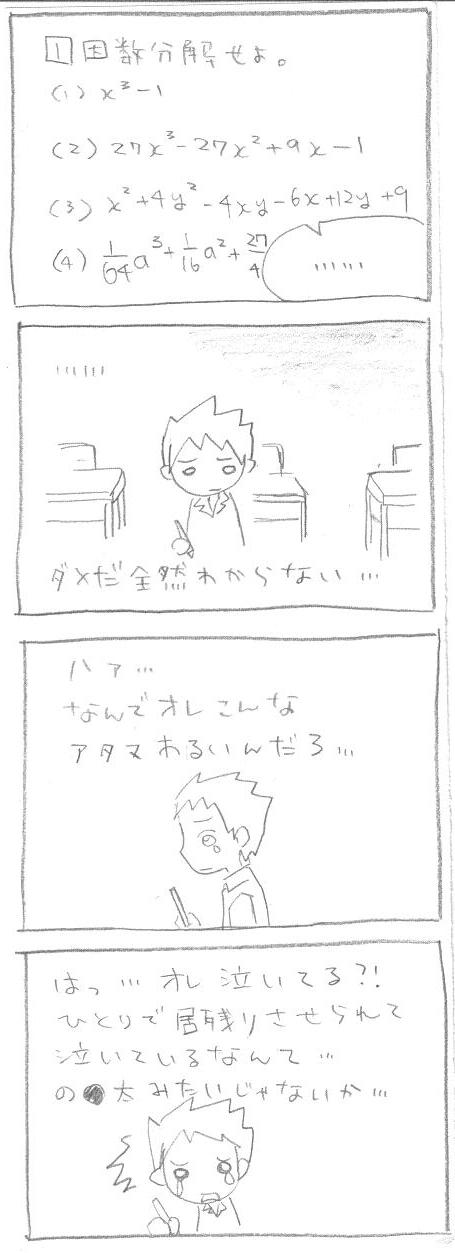 1 因数分解せよ。
(1) x³-1
(2) 27x³-27x²+9x-1
(3) x²+4y²-4xy-6x+12y+9
(4) 1/64a³+1/16a²+27/4
……
……
ダメだ全然わからない…
ハァ…
なんでオレこんな
アタマわるいんだろ…
はっ…オレ泣いてる?!
ひとりで居残りさせられて
泣いているなんて…
の●太みたいじゃないか…